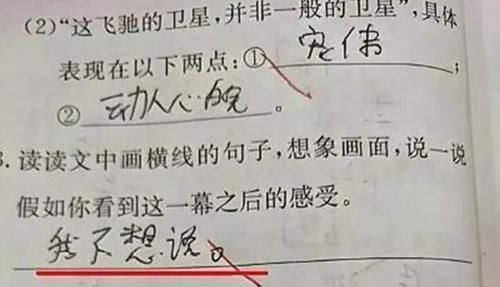 (2)“这飞驰的卫星,并非一般的卫星”,具体
表现在以下两点:①宠伟;
②动人心魄。
3.读读文中画横线的句子,想象画面,说一说
假如你看到这一幕之后的感受。
我不想说。